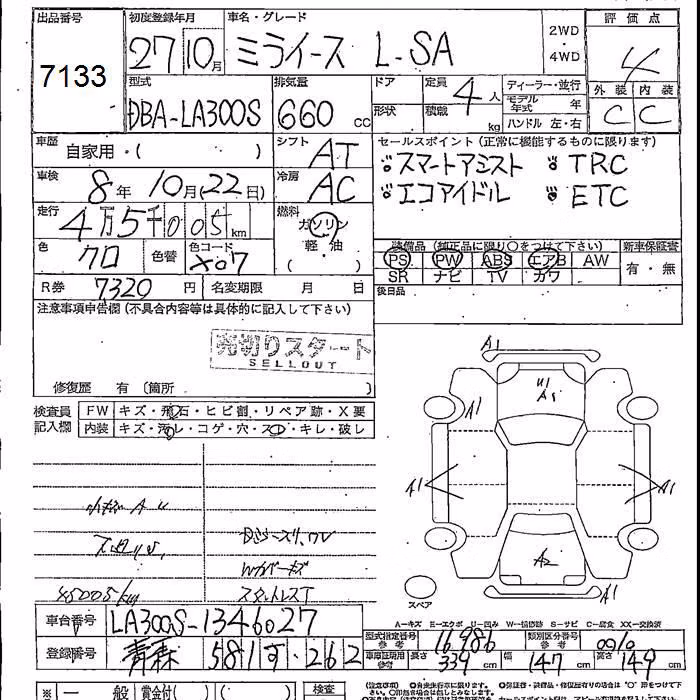 出品番号 初度登録年月 車名・グレード 評価点
7133 27 10月 ミライース L-SA 2WD・4WD 4
型式 排気量 ドア 定員 ディーラー・並行 外装 内装
DBA-LA300S 660cc 形状 積載 4人 kg モデル年式 年 C C
ハンドル 左・右
車歴 自家用・( ) シフト AT セールスポイント(正常に機能するものに限ります)
スマートアシスト TRC
車検 8年 10月(22日) 冷房 AC エコアイドル ETC
走行 4万5千005km 燃料 ガソリン 軽・油 ( )
色 クロ 色替 色コード X07 装備品(純正品に限り○をつけて下さい) 新車保証書
PS PW ABS エアB AW 有・無
SR ナビ TV カワ
R券 7320円 名変期限 月 日 後日品
注意事項申告欄(不具合内容等は具体的に記入して下さい)
売切りスタート
SELLOUT
修復歴 有 (箇所 )
検査員記入欄 FW キズ・飛石・ヒビ割・リペア跡・X要
内装 キズ・汚レ・コゲ・穴・スレ・キレ・破レ
A1
U1
A1
A1 A1
A1 A1
A2
スペア A1
45005km スタットレスT
A-キズ E-エクボ U-凹み S-サビ C-腐食 XX-交換済
車台番号 LA300S-1346027
型式指定番号 参考 16986 類別区分番号 参考 0010
登録番号 青森 581 す・262
車庫証明用 参考 長さ 339cm 幅 147cm 高さ 149cm
※ 一般 賞金付( ) 検査